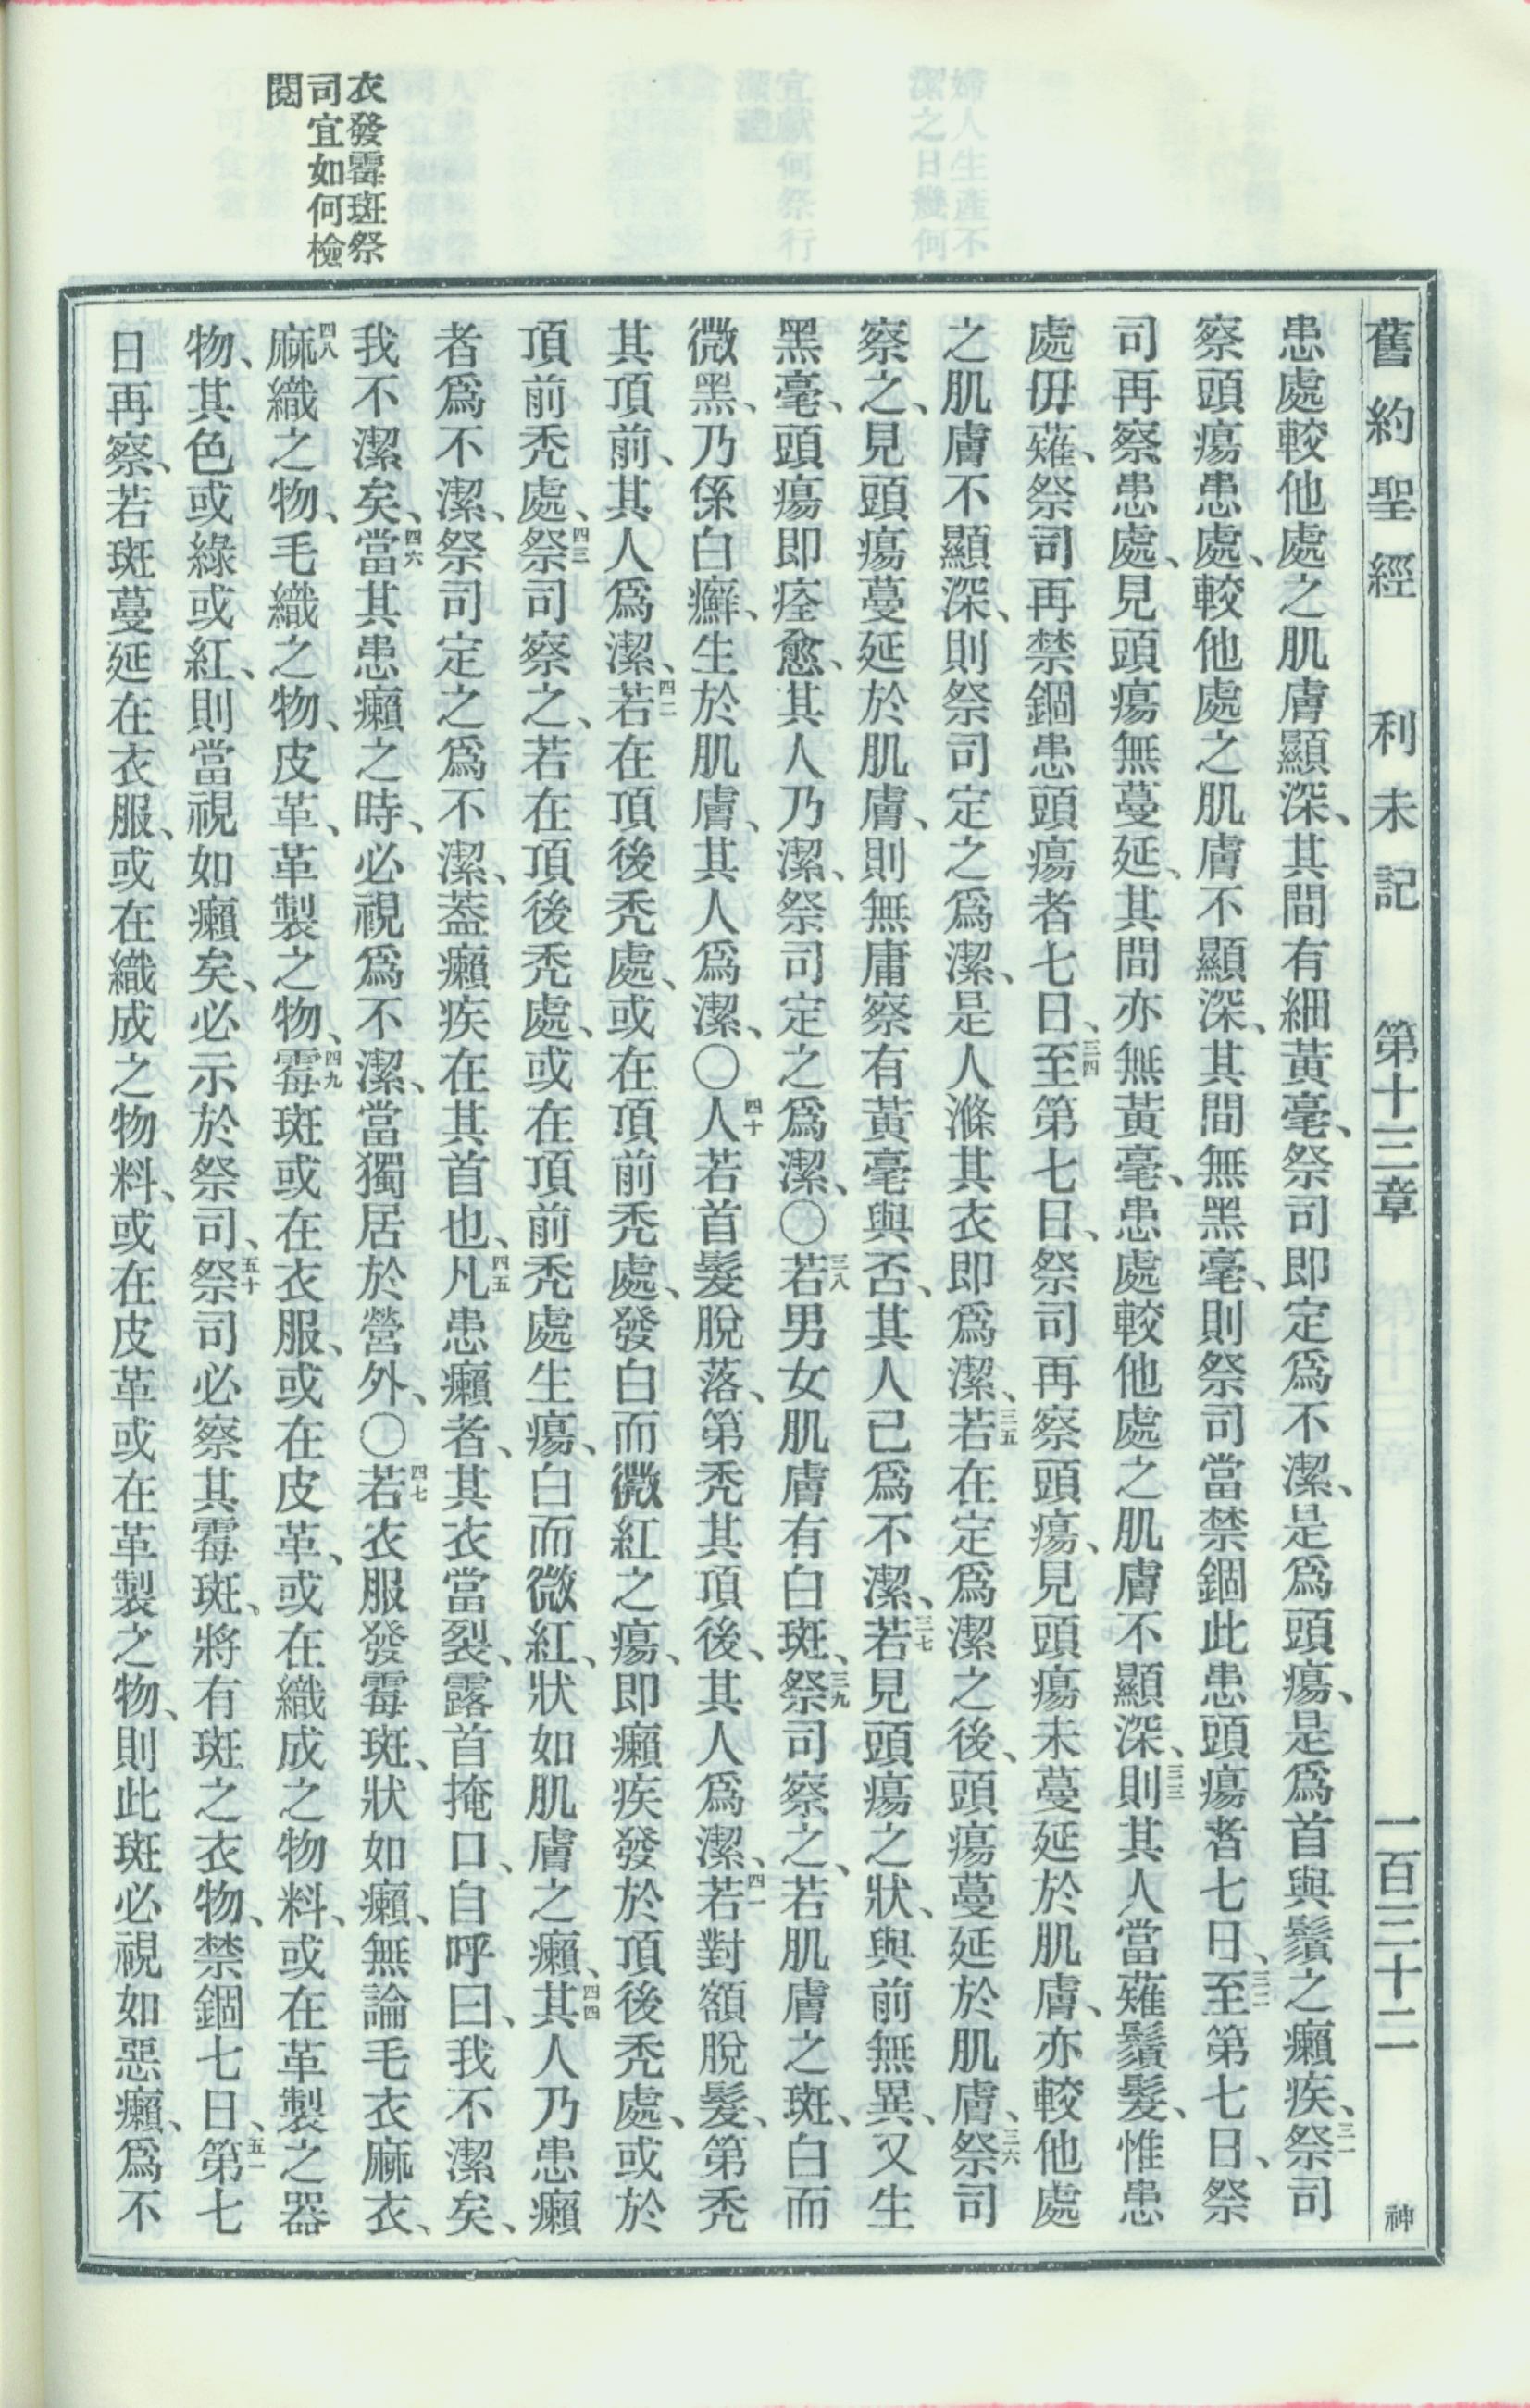 舊約聖經 利未記 第十三章 一百三十二 神
患處較他處之肌膚顯深、其間有細黃毫、祭司即定爲不潔、是爲頭瘍、是爲首與鬚之癩疾、三一祭司
察頭瘍患處、較他處之肌膚不顯深、其間無黑毫、則祭司當禁錮此患頭瘍者七日、三二至第七日、祭
司再察患處、見頭瘍無蔓延、其間亦無黃毫、患處較他處之肌膚不顯深、三三則其人當薙鬚髮、惟患
處毋薙、祭司再禁錮患頭瘍者七日、三四至第七日、祭司再察頭瘍、見頭瘍未蔓延於肌膚、亦較他處
之肌膚不顯深、則祭司定之爲潔、是人滌其衣即爲潔、三五若在定爲潔之後、頭瘍蔓延於肌膚、三六祭司
察之、見頭瘍蔓延於肌膚、則無庸察有黃毫與否、其人已爲不潔、三七若見頭瘍之狀、與前無異、又生
黑毫、頭瘍即痊愈、其人乃潔、祭司定之爲潔、〇三八若男女肌膚有白斑、三九祭司察之、若肌膚之斑、白而
微黑、乃係白癬、生於肌膚、其人爲潔、〇四十人若首髮脫落、第禿其頂後、其人爲潔、四一若對額脫髮、第禿
其頂前、其人爲潔、四二若在頂後禿處、或在頂前禿處、發白而微紅之瘍、即癩疾發於頂後禿處、或於
頂前禿處、四三祭司察之、若在頂後禿處、或在頂前禿處生瘍、白而微紅、狀如肌膚之癩、四四其人乃患癩
者爲不潔、祭司定之爲不潔、蓋癩疾在其首也、四五凡患癩者、其衣當裂、露首掩口、自呼曰、我不潔矣、
我不潔矣、四六當其患癩之時、必視爲不潔、當獨居於營外、〇四七若衣服發霉斑、狀如癩、無論毛衣麻衣、
四八麻織之物、毛織之物、皮革、革製之物、四九霉斑或在衣服、或在皮革、或在織成之物料、或在革製之器
物、其色或綠或紅、則當視如癩矣、必示於祭司、五十祭司必察其霉斑、將有斑之衣物、禁錮七日、五一第七
日再察、若斑蔓延在衣服、或在織成之物料、或在皮革或在革製之物、則此斑必視如惡癩、爲不
衣發霉斑祭
司宜如何檢
閱